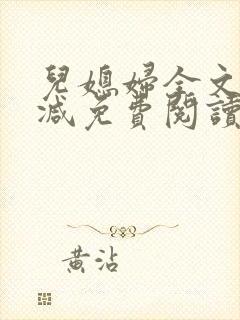 兒媳婦全文
減免費閱讀
黃沾